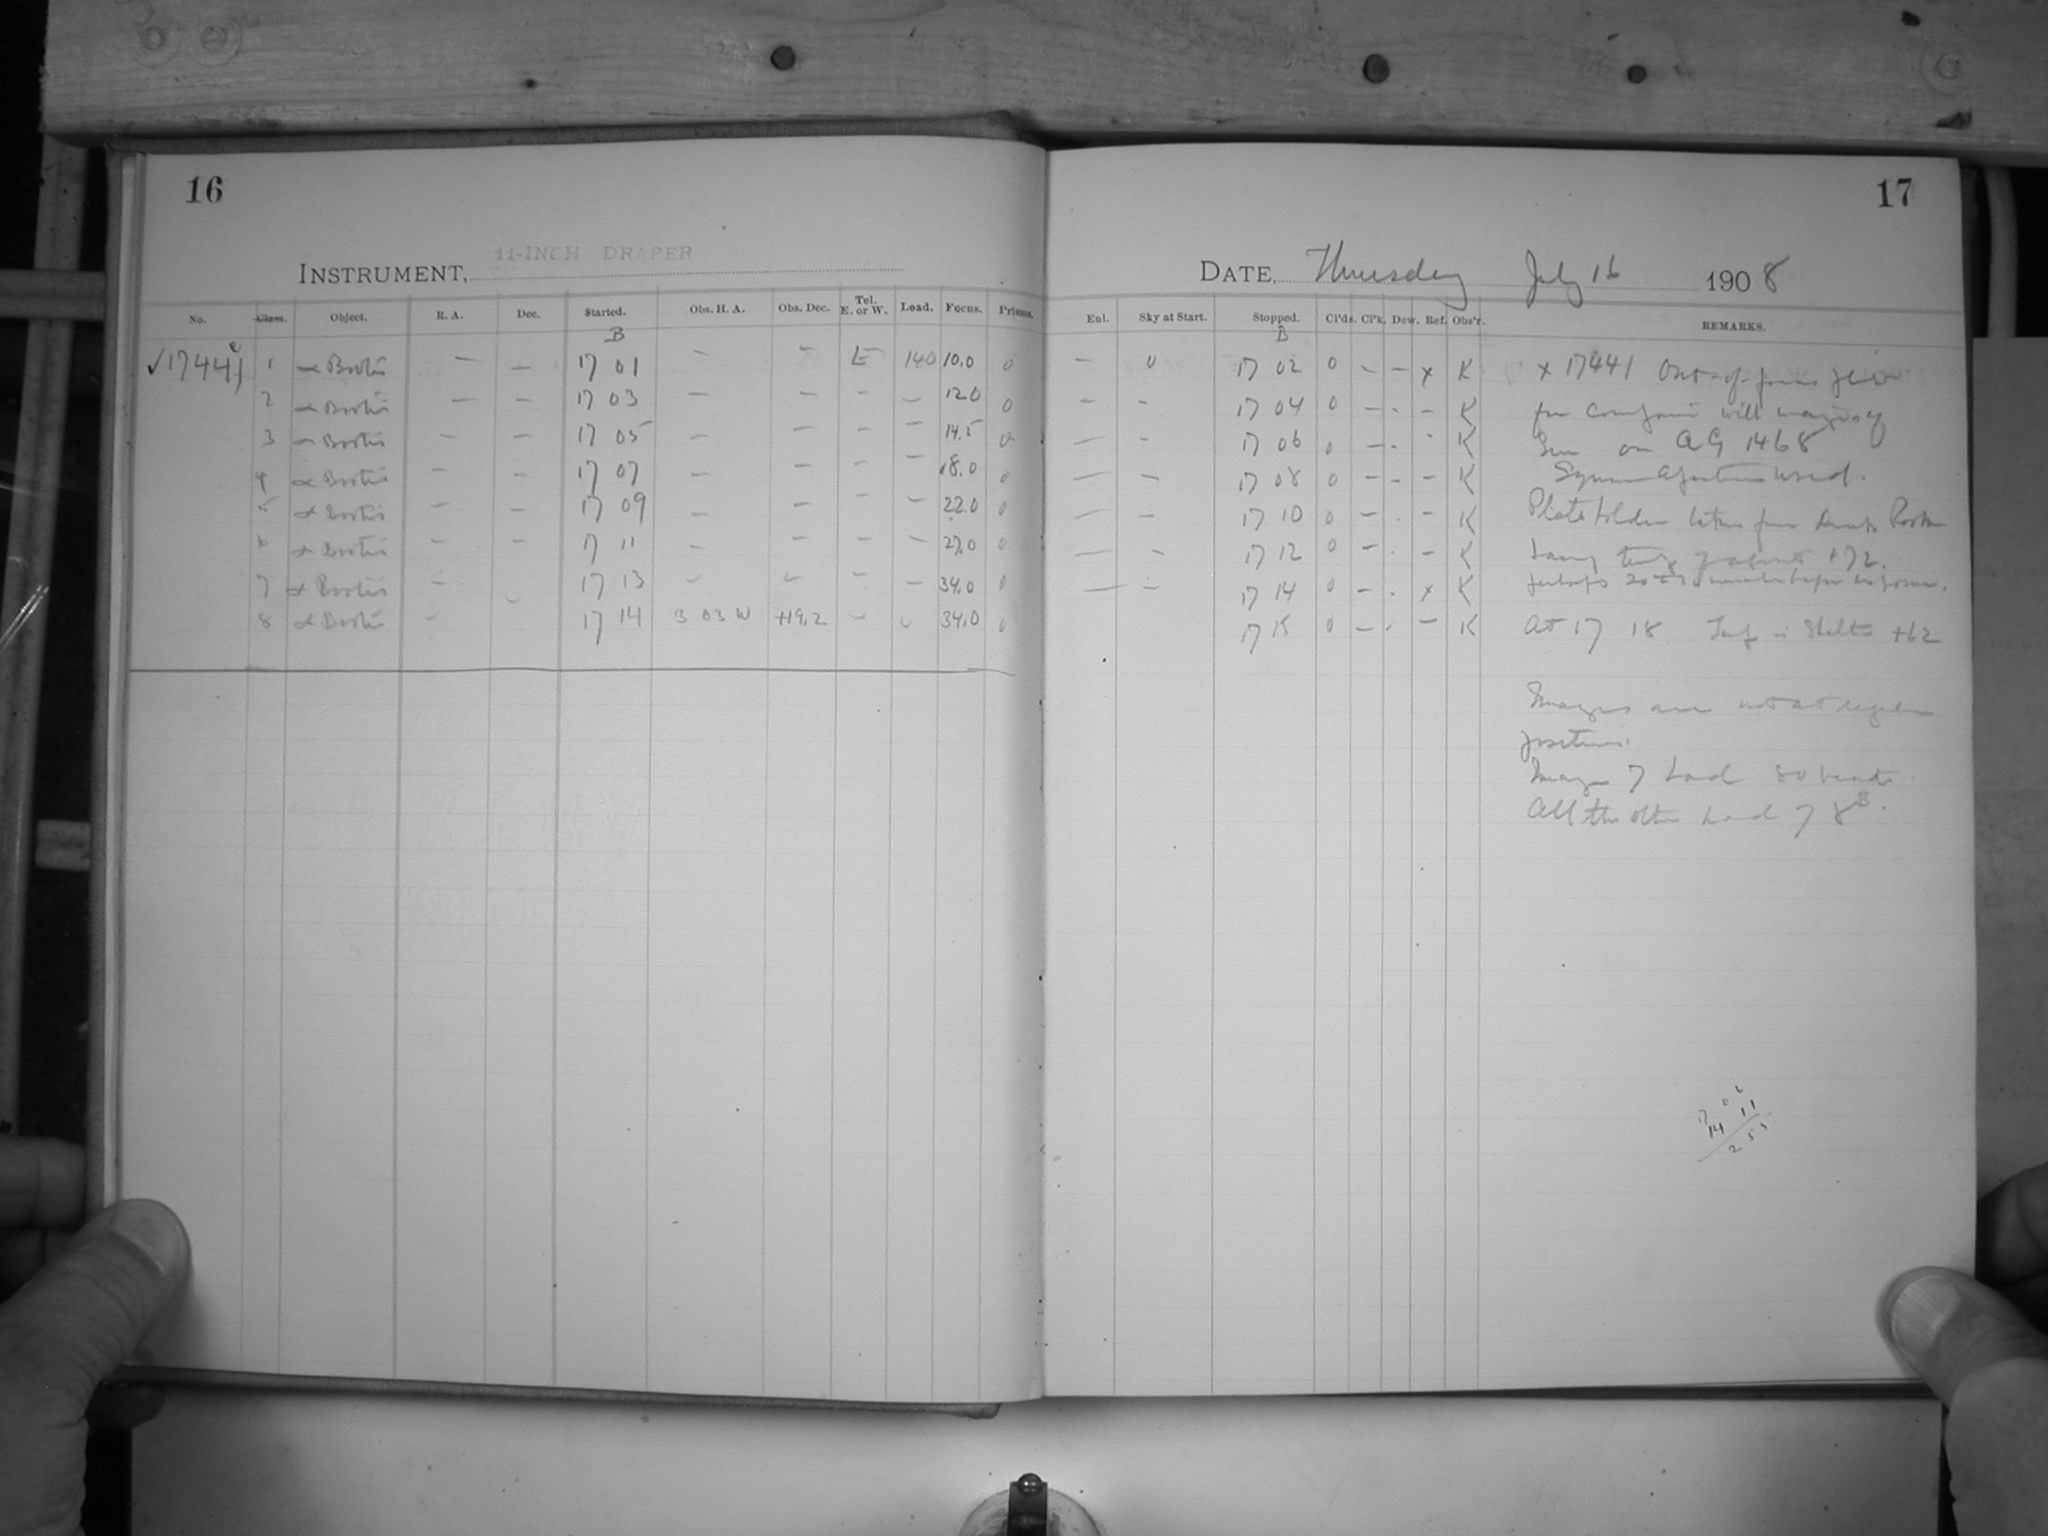 16
11-INCH DRAPER
INSTRUMENT,
No. Class. Object. R. A. Dec. Started. Obs. H. A. Obs. Dec. Tel. E. or W. Load. Focus. Prisms.
B
✓17441 1 α Bootis — — 17 01 — — E 140 10.0 0
2 α Bootis — — 17 03 — — — — 12.0 0
3 α Bootis — — 17 05 — — — — 14.5 0
4 α Bootis — — 17 07 — — — — 18.0 0
5 α Bootis — — 17 09 — — — — 22.0 0
6 α Bootis — — 17 11 — — — — 27.0 0
7 α Bootis — — 17 13 — — — — 34.0 0
8 α Bootis — 17 14 3 03 W +19.2 — — 34.0 0
17
DATE, Thursday July 16 1908
Enl. Sky at Start. Stopped. Cl'ds. Cl'k. Dew. Ref. Obs'r. REMARKS.
B
— 0 17 02 0 — — x K x 17441 Out-of-focus
— — 17 04 0 — — — K for with
— — 17 06 0 — — — K on AG 1468
— — 17 08 0 — — — K used.
— — 17 10 0 — — — K Plate holder Room
— — 17 12 0 — — — K +72.
— — 17 14 0 — — x K perhaps 20 to 30 minutes before exposure.
17 15 0 — — — K At 17 18 +62
Images are not at regular
positions.
Image 7 had 80 beats.
All the others had 78 B.
17 06
14 11
2 55